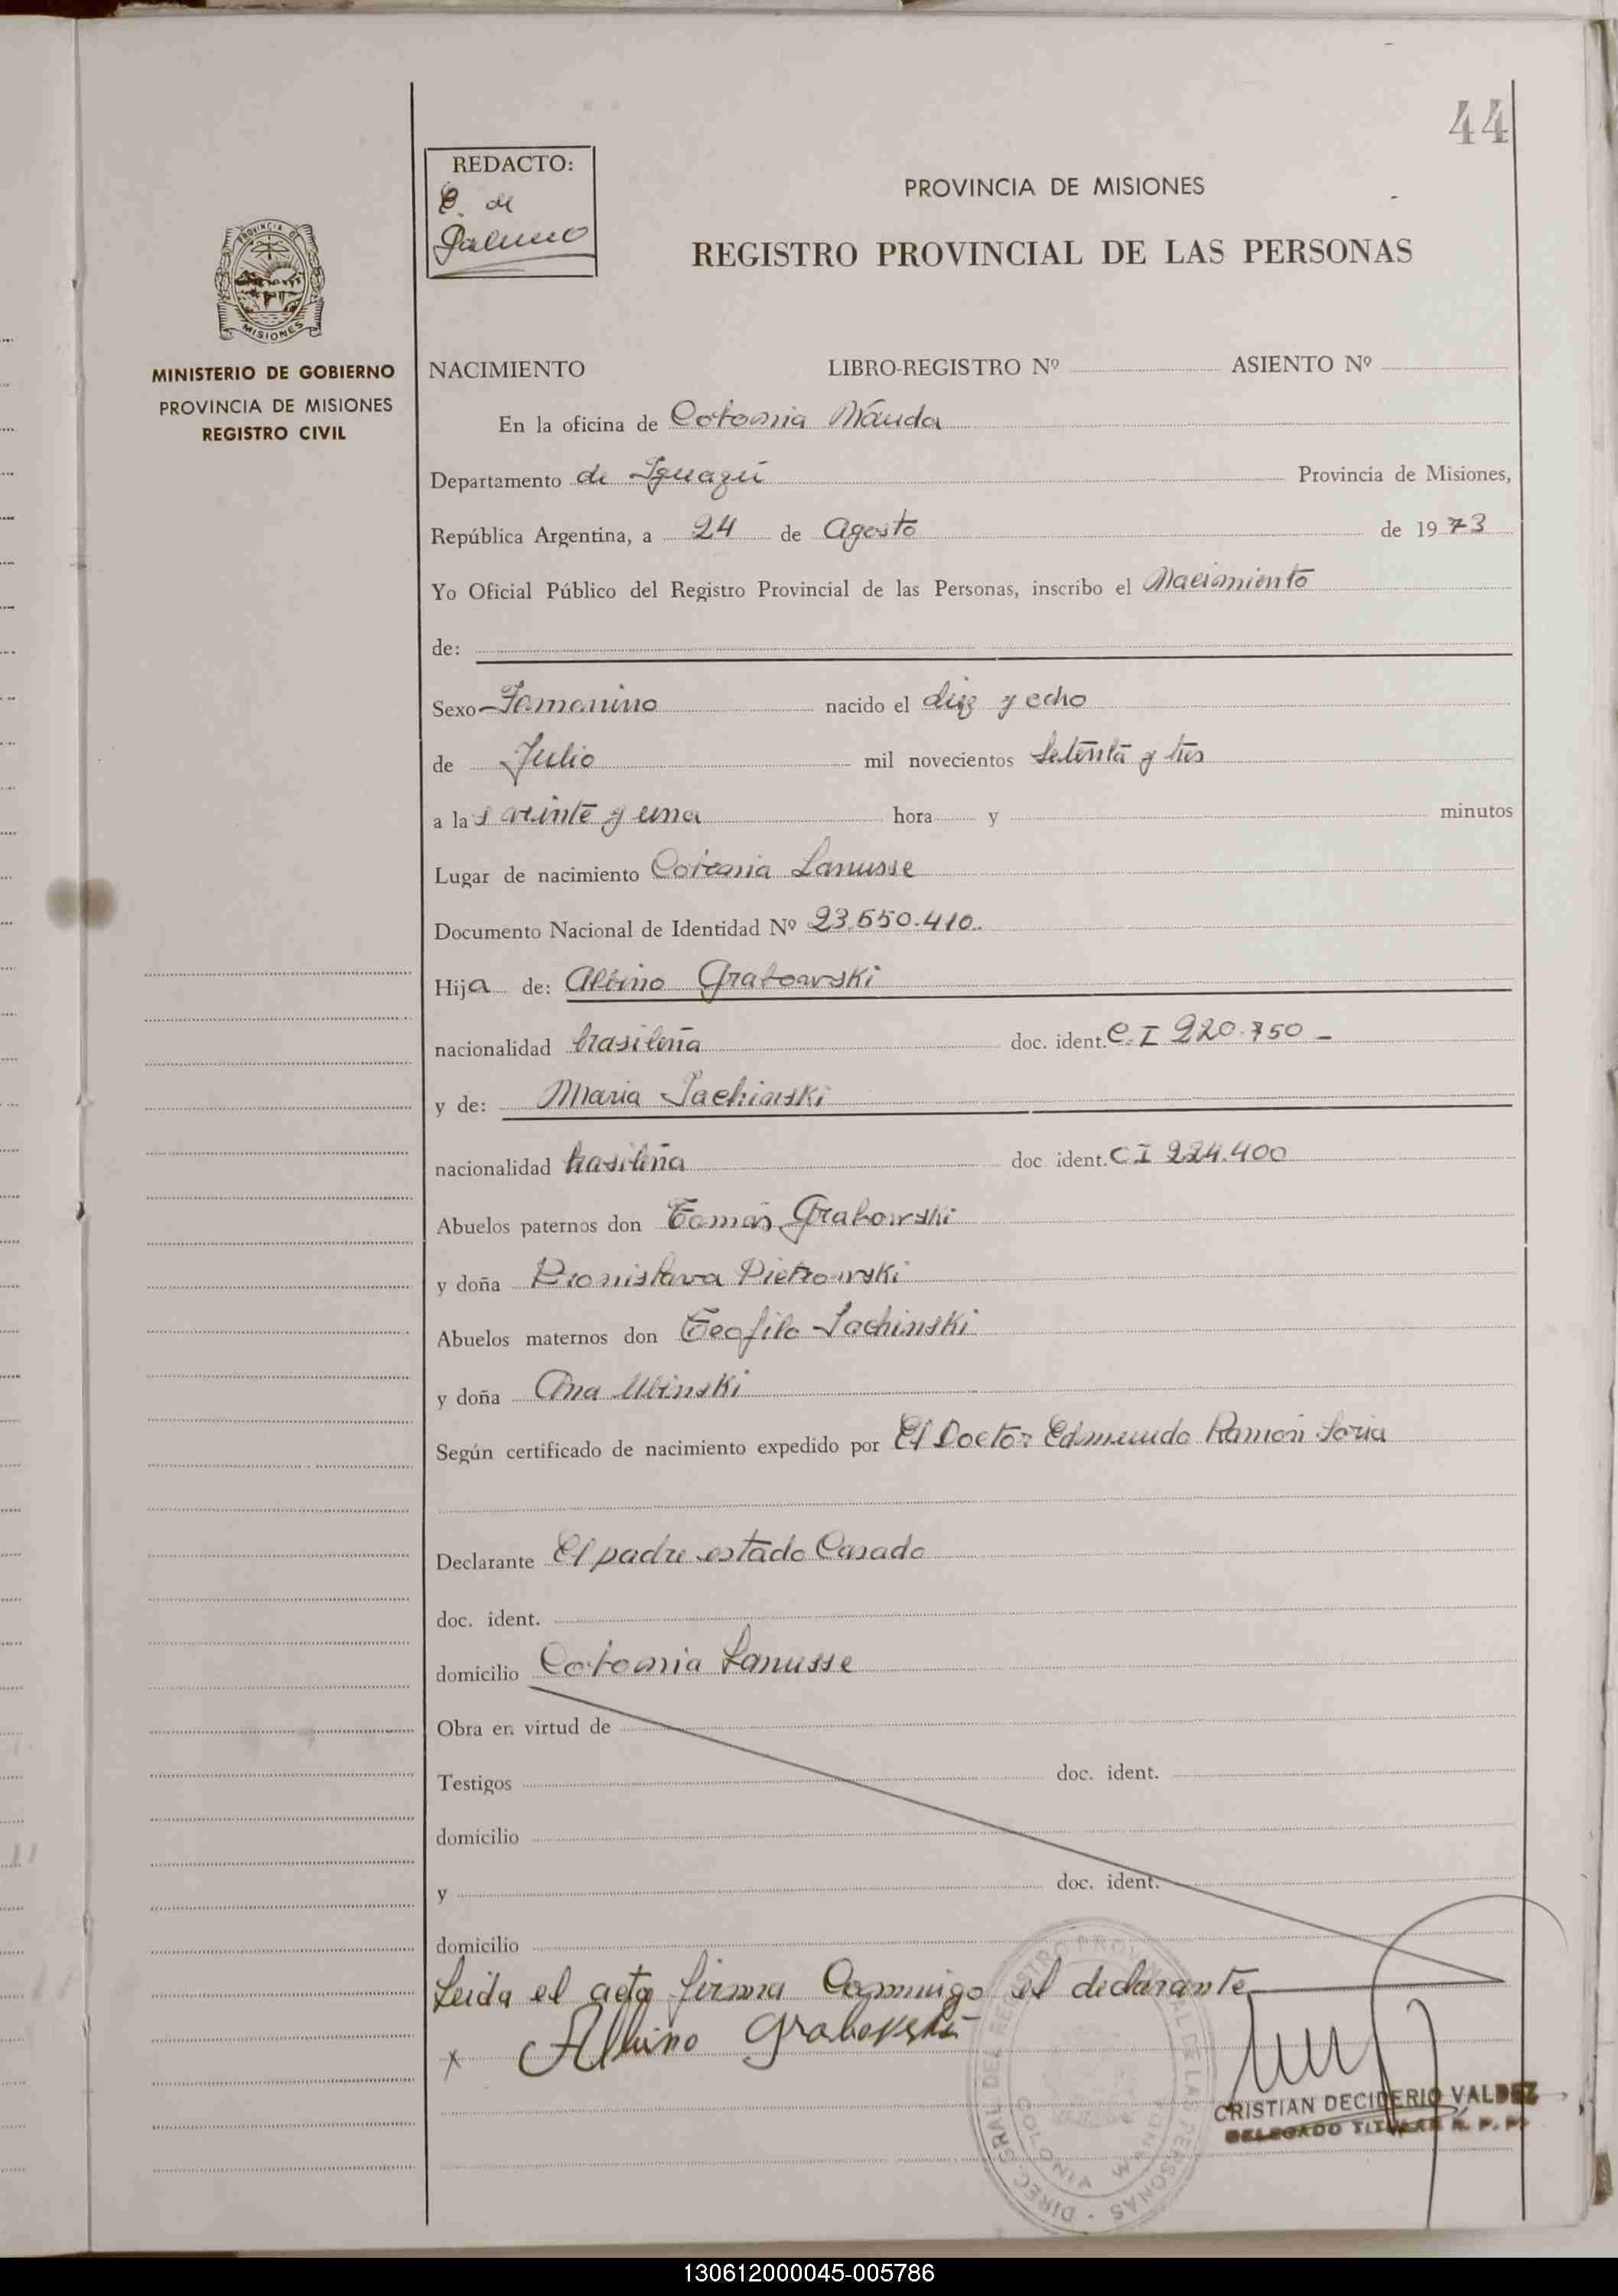 44
REDACTO:
C. de
PROVINCIA DE MISIONES
REGISTRO PROVINCIAL DE LAS PERSONAS
PROVINCIA DE
MISIONES
MINISTERIO DE GOBIERNO
PROVINCIA DE MISIONES
REGISTRO CIVIL
NACIMIENTO LIBRO-REGISTRO Nº ASIENTO Nº
En la oficina de Colonia Wanda
Departamento de Iguazú Provincia de Misiones,
República Argentina, a 24 de Agosto de 1973
Yo Oficial Público del Registro Provincial de las Personas, inscribo el Nacimiento
de:
Sexo Femenino nacido el diez y ocho
de Julio mil novecientos setenta y tres
a las veinte y una hora y minutos
Lugar de nacimiento Colonia Lanusse
Documento Nacional de Identidad Nº 23.550.410.
Hija de: Albino Grabowski
nacionalidad brasileña doc. ident. C.I 220.750 -
y de: Maria Sachinski
nacionalidad brasileña doc ident. CI 224.400
Abuelos paternos don Tomás Grabowski
y doña Bronislava Pietrowski
Abuelos maternos don Teofilo Sachinski
y doña Ana Ubinski
Según certificado de nacimiento expedido por El Doctor Edmundo Ramón Soria
Declarante El padre estado Casado
doc. ident.
domicilio Colonia Lanusse
Obra en virtud de
Testigos doc. ident.
domicilio
y doc. ident.
domicilio
Leida el acta firma Conmigo el declarante
x Albino Grabowski
DIREC. GRAL DEL REGISTRO PROVINCIAL DE LAS PERSONAS
COLONIA WANDA
CRISTIAN DECIDERIO VALDEZ
DELEGADO TITULAR R. P. P.
130612000045-005786